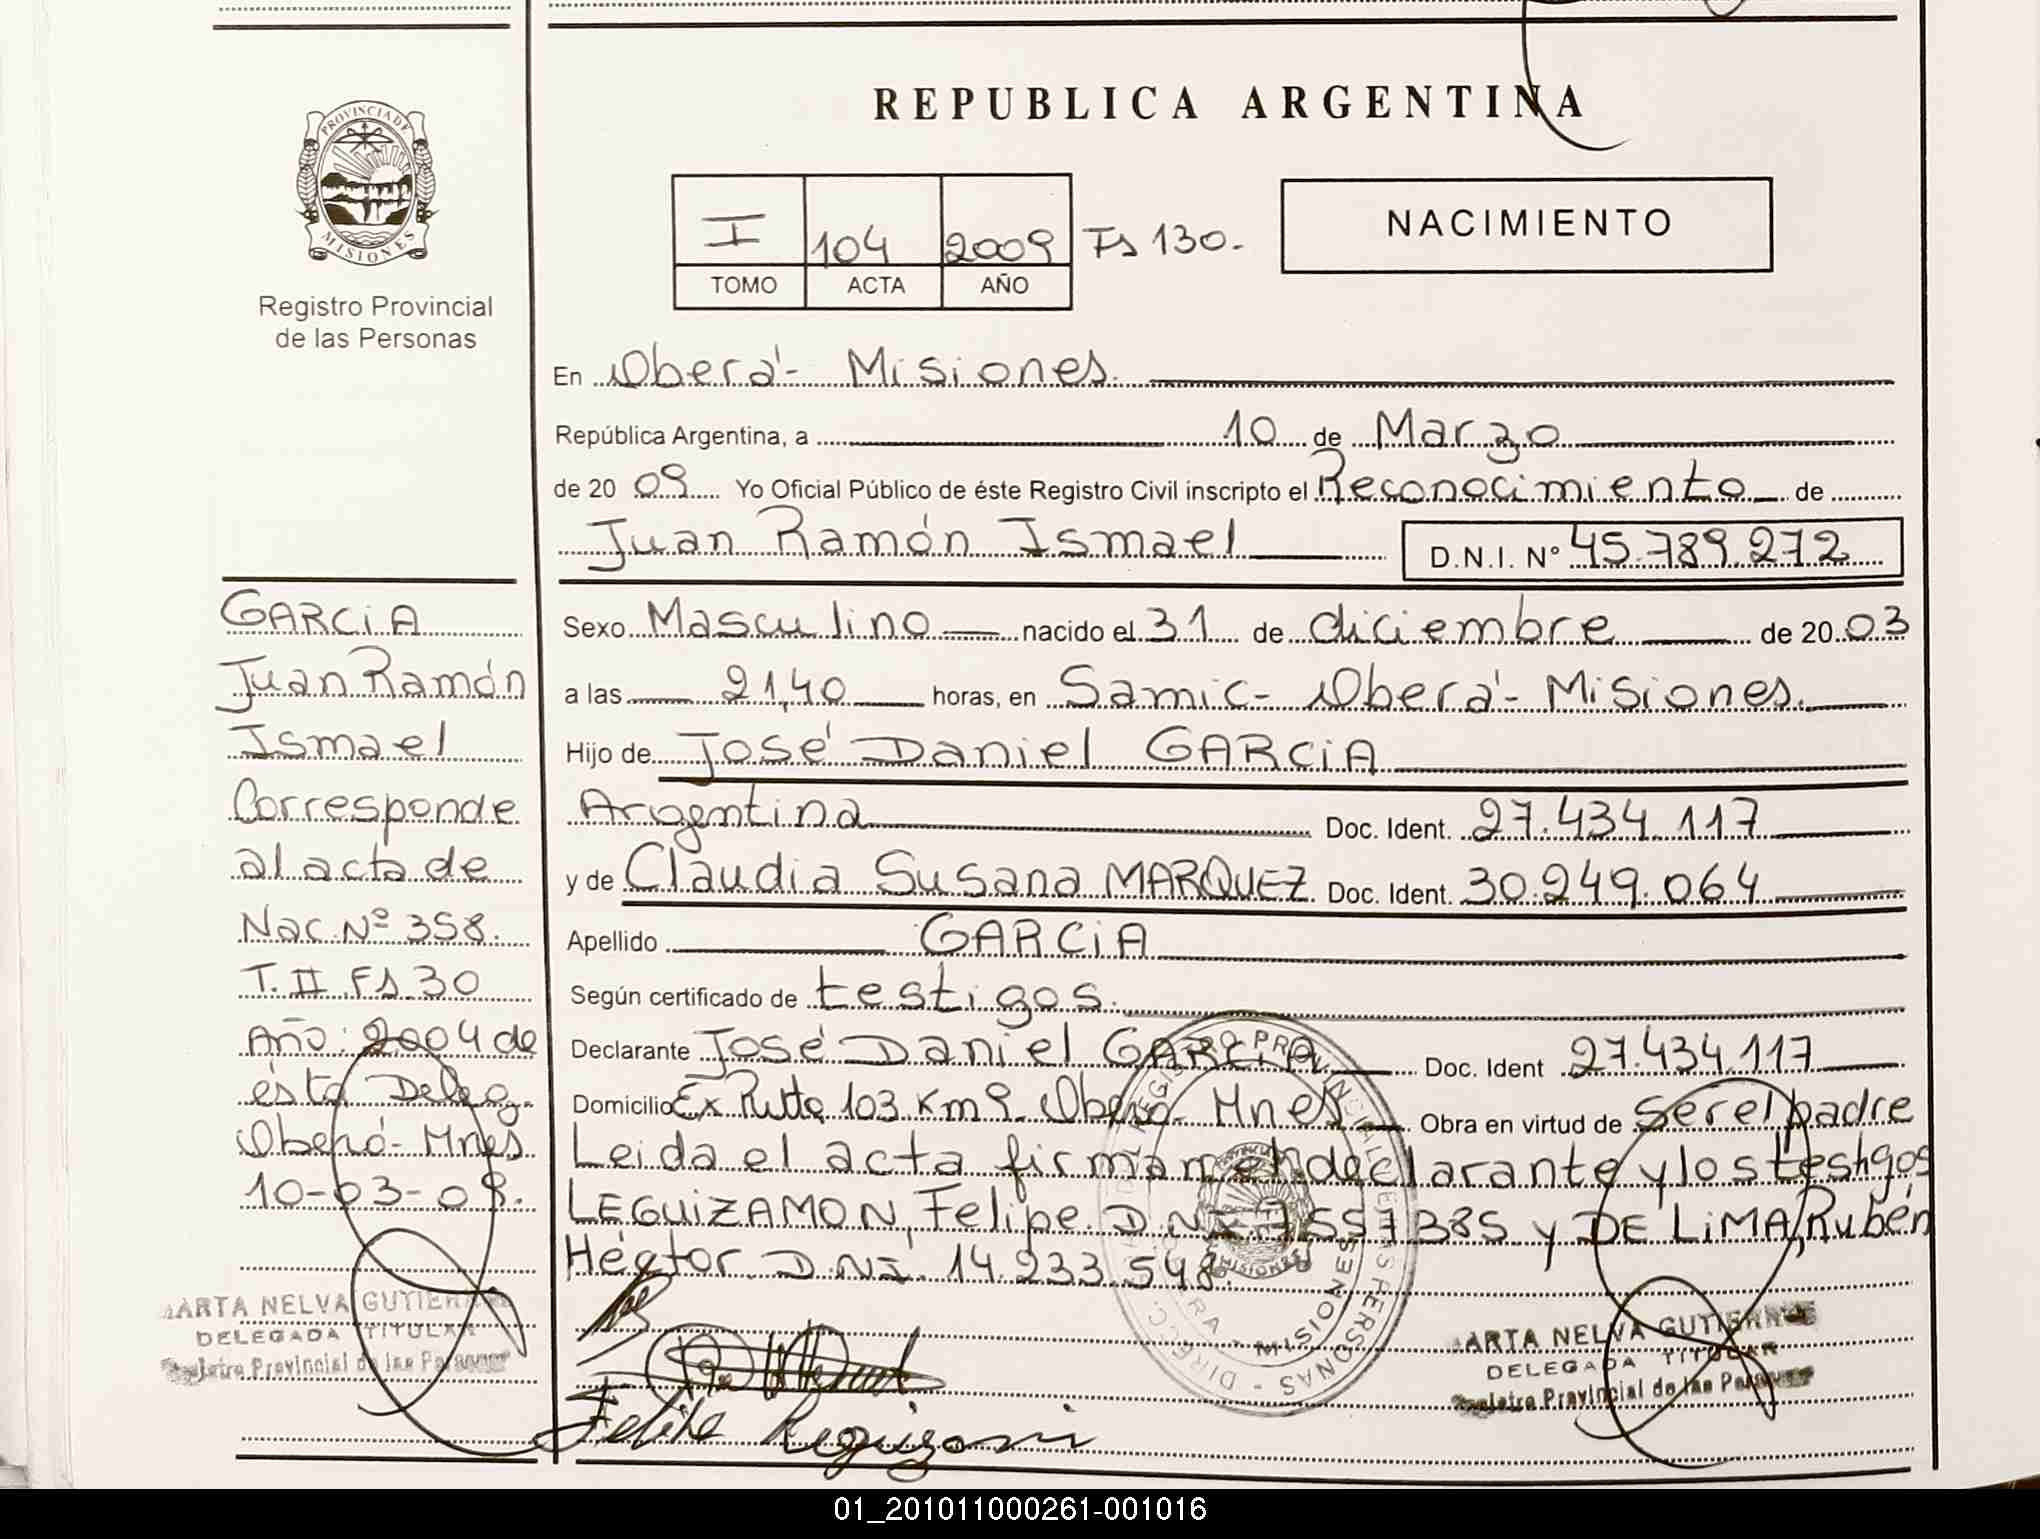 REPUBLICA ARGENTINA
PROVINCIA DE
MISIONES
Registro Provincial
de las Personas
I 104 2009 Fs 130.-
TOMO ACTA AÑO
NACIMIENTO
En Oberá - Misiones.
República Argentina, a 10 de Marzo
de 20 09 Yo Oficial Público de éste Registro Civil inscripto el Reconocimiento de
Juan Ramón Ismael D.N.I. Nº 45.789.272
Sexo Masculino nacido el 31 de diciembre de 20 03
a las 21,40 horas, en Samic - Oberá - Misiones.
Hijo de José Daniel GARCiA
Argentina Doc. Ident. 27.434.117
y de Claudia Susana MARQUEZ Doc. Ident. 30.249.064
Apellido GARCiA
Según certificado de testigos.
Declarante José Daniel GARCiA Doc. Ident 27.434.117
Domicilio Ex Rutta 103 Km 9. Oberá - Mnes Obra en virtud de ser el padre
Leida el acta firman el declarante y los testigos
LEGUiZAMON, Felipe D.N.I. 7557385 y DE LiMA, Rubén
Héctor D.N.I. 14.233.548
GARCiA
Juan Ramón
Ismael
Corresponde
al acta de
Nac. Nº 358.
T. II Fs. 30
Año: 2004 de
ésta Deleg.
Oberá - Mnes.
10-03-09.
MARTA NELVA GUTIERREZ
DELEGADA TITULAR
Registro Provincial de las Personas
MARTA NELVA GUTIERREZ
DELEGADA TITULAR
Registro Provincial de las Personas
01_201011000261-001016